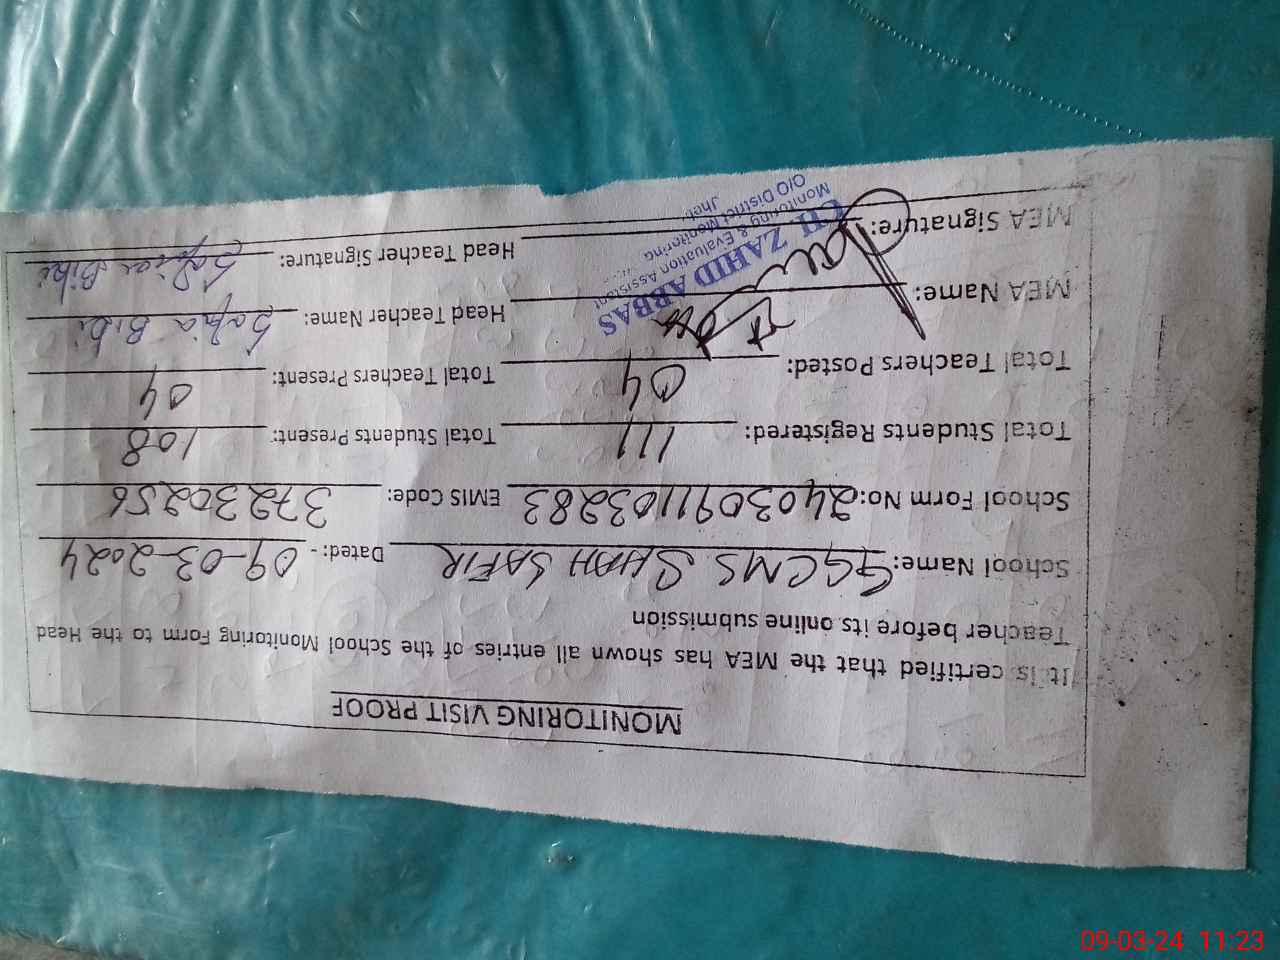 MONITORING VISIT PROOF
It is certified that the MEA has shown all entries of the School Monitoring Form to the Head
Teacher before its online submission
School Name: GGCMS SHAH SAFIR Dated: - 09-03-2024
School Form No: 2403091103283 EMIS Code: 37230256
Total Students Registered: 111 Total Students Present: 108
Total Teachers Posted: 04 Total Teachers Present: 04
MEA Name: Head Teacher Name: Safia Bibi
MEA Signature: Head Teacher Signature: Safia Bibi
CH ZAHID ABBAS
Monitoring & Evaluation Assistant
O/O District Monitoring
09-03-24 11:23